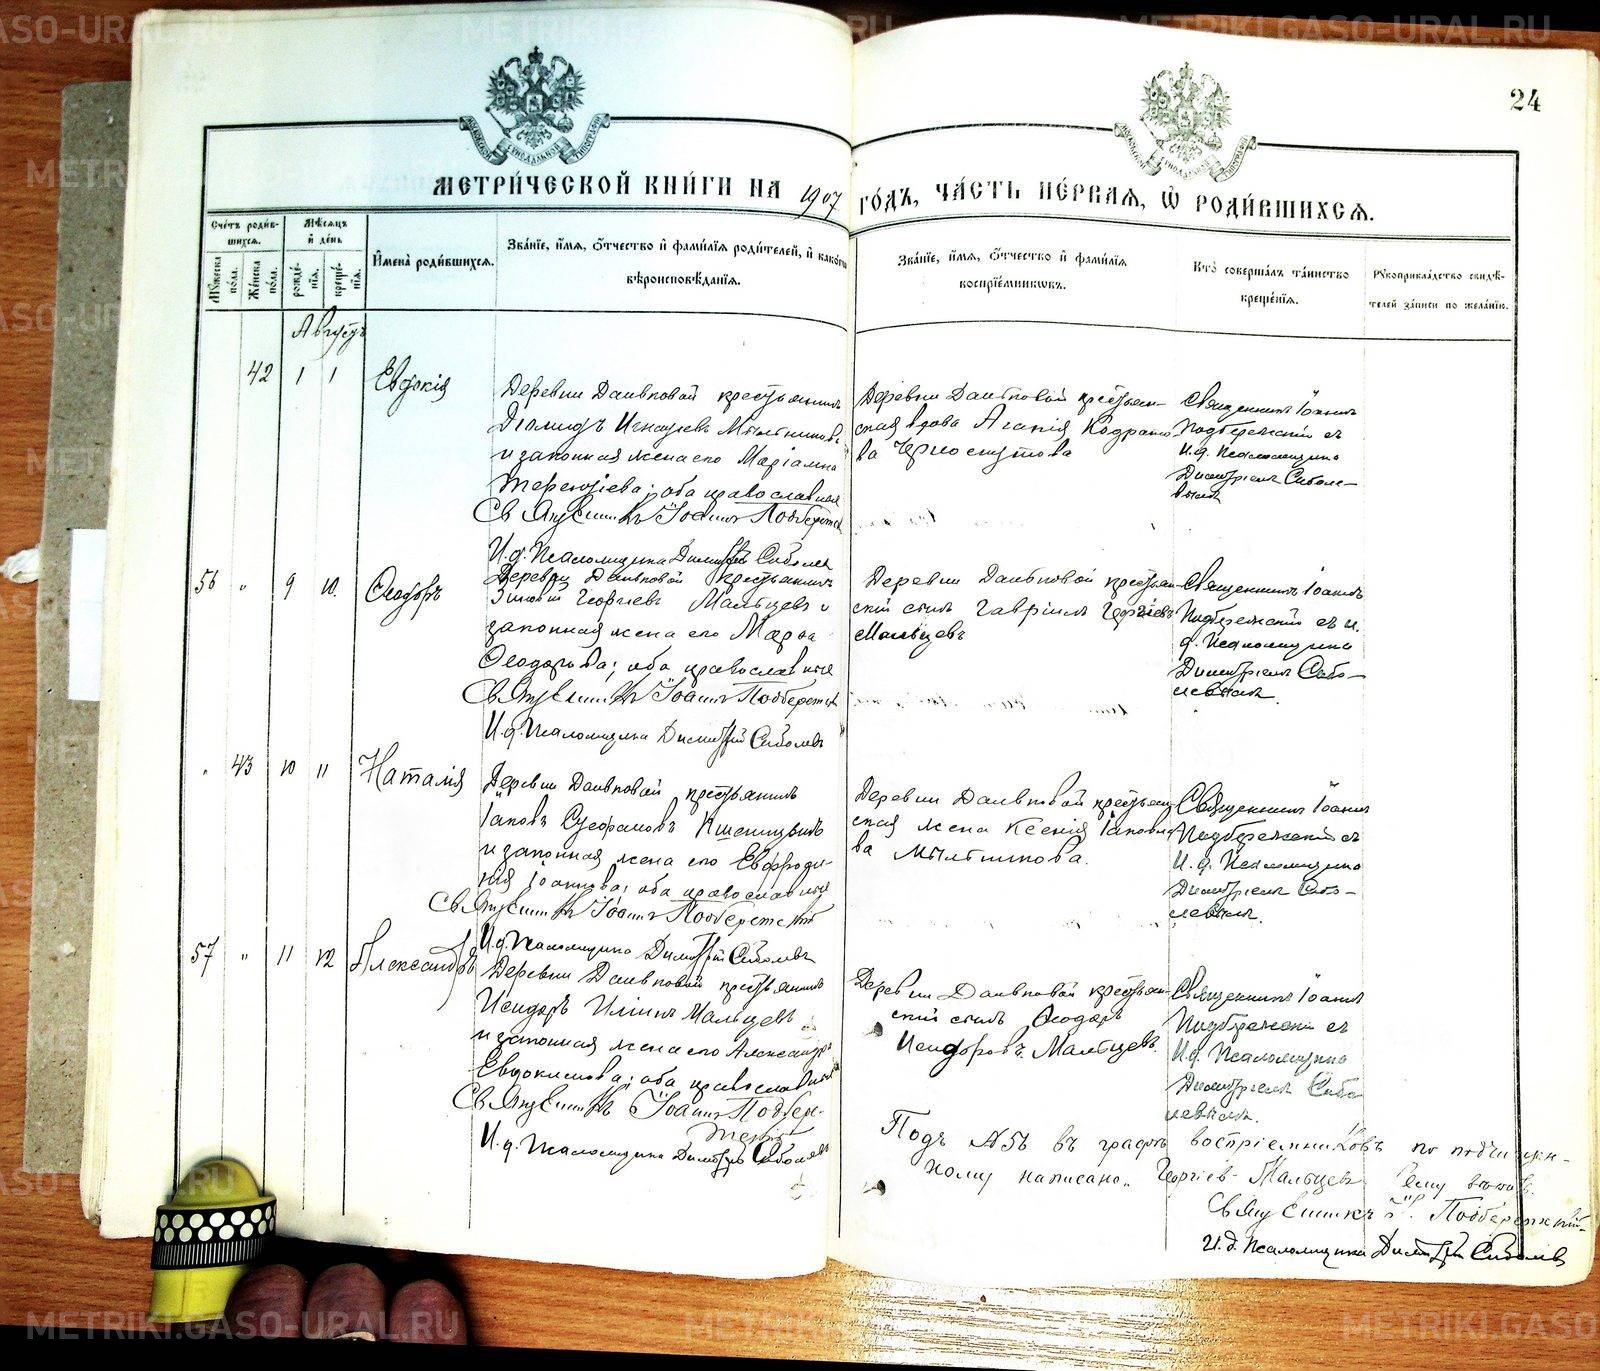 24
МЕТРИ́ЧЕСКОЙ КНИ́ГИ НА 1907 ГО́ДЪ, ЧА́СТЬ ПЕ́РВАЯ, Ѡ РОДИ́ВШИХСЯ.
Сче́тъ роди́в-
шихся.
Му́жеска по́ла.
Же́нска по́ла.
Мѣ́сяцъ
и де́нь
рожде́-
нія.
креще́-
нія.
И҆мена̀ роди́вшихся.
Зва́ніе, и҆́мя, ѻ҆́тчество и҆ фами́лія роди́телей, и҆ како́гѡ
вѣроисповѣ́данія.
Зва́ніе, и҆́мя, ѻ҆́тчество и҆ фами́лія
воспріе́мникѡвъ.
Кто̀ соверша́лъ та́инство
креще́нія.
Рꙋкоприкла́дство свидѣ́-
телей за́писи по жела́нію.
Августъ
42 1 1 Евдокія
Деревни Далвковой крестьянинъ
Діомидъ Игнатіевъ Мыльниковъ
и законная жена его Маріамна
Терентіева; оба православныя
Священникъ Іоаннъ Подбережскій
И. д. Псаломщика Димитрій Соболевъ
Деревни Далвковой крестьян-
ская вдова Агапія Кодрато
ва Черноскутова
Священникъ Іоаннъ
Подбережскій съ
И. д. Псаломщика
Димитріемъ Соболе-
вымъ
56 " 9 10. Ѳеодоръ
Деревни Далвковой крестьянинъ
Зиновій Георгіевъ Мальцевъ и
законная жена его Марѳа
Ѳеодорова; оба православныя
Священникъ Іоаннъ Подбережскій
И. д. Псаломщика Димитрій Соболевъ
Деревни Далвковой крестьян-
скій сынъ Гавріилъ Георгіевъ
Мальцевъ
Священникъ Іоаннъ
Подбережскій съ и.
д. Псаломщика
Димитріемъ Собо-
левымъ.
" 43 10 11 Наталія
Деревни Далвковой крестьянинъ
Іаковъ Пшеницынъ
и законная жена его Евфроси-
нія Іоаннова; оба православныя
Священникъ Іоаннъ Подбережскій
И. д. Псаломщика Димитрій Соболевъ
Деревни Далвковой крестьян-
ская жена Ксенія Іаковле
ва Мыльникова.
Священникъ Іоаннъ
Подбережскій съ
И. д. Псаломщика
Димитріемъ Собо-
левымъ.
57 " 11 12 Александръ
Деревни Далвковой крестьянинъ
Исидоръ Иліинъ Мальцевъ
и законная жена его Александра
Евдокимова; оба православныя
Священникъ Іоаннъ Подбереж-
скій
И. д. Псаломщика Димитрій Соболевъ
Деревни Далвковой крестьян-
скій сынъ Ѳеодоръ
Исидоровъ Мальцевъ.
Священникъ Іоаннъ
Подбережскій съ
И. д. Псаломщика
Димитріемъ Собо
левымъ.
Подъ № 56 въ графѣ воспріемниковъ по подчищен-
ному написано: Георгіевъ Мальцевъ.
Священникъ І. Подбережскій
И. д. Псаломщика Димитрій Соболевъ
METRIKI.GASO-URAL.RU